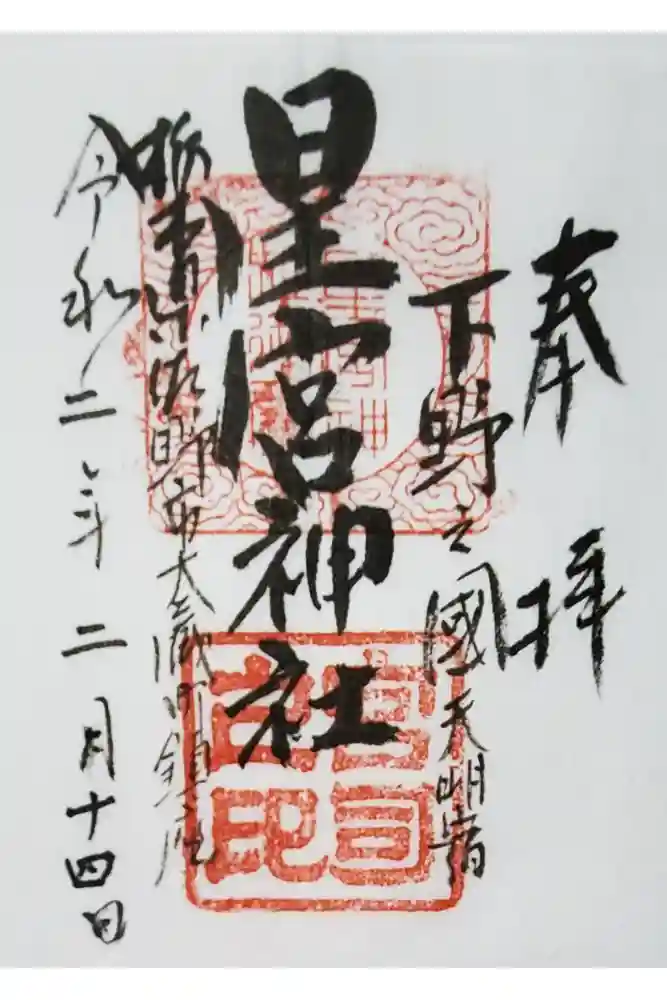 奉拝
下野之國天明宿
星宮神社
栃木県佐野市大蔵町鎮座
令和二年二月十四日
宮司之印